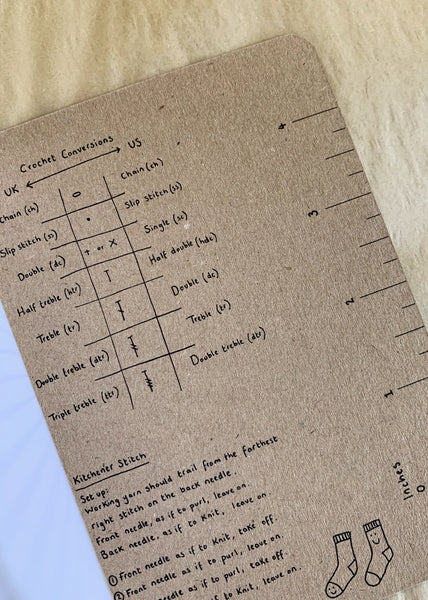 Crochet Conversions
UK US
Chain (ch) O Chain (ch)
Slip stitch (ss) • Slip stitch (ss)
Double (dc) + or X Single (sc)
Half treble (htr) Half double (hdc)
Treble (tr) Double (dc)
Double treble (dtr) Treble (tr)
Triple treble (ttr) Double treble (dtr)
4
3
2
1
0
Inches
Kitchener Stitch
Set up:
Working yarn should trail from the farthest
right stitch on the back needle.
Front needle, as if to purl, leave on.
Back needle, as if to knit, leave on.
① Front needle as if to knit, take off.
② Front needle as if to purl, leave on.
needle as if to purl, take off.
as if to knit, leave on.